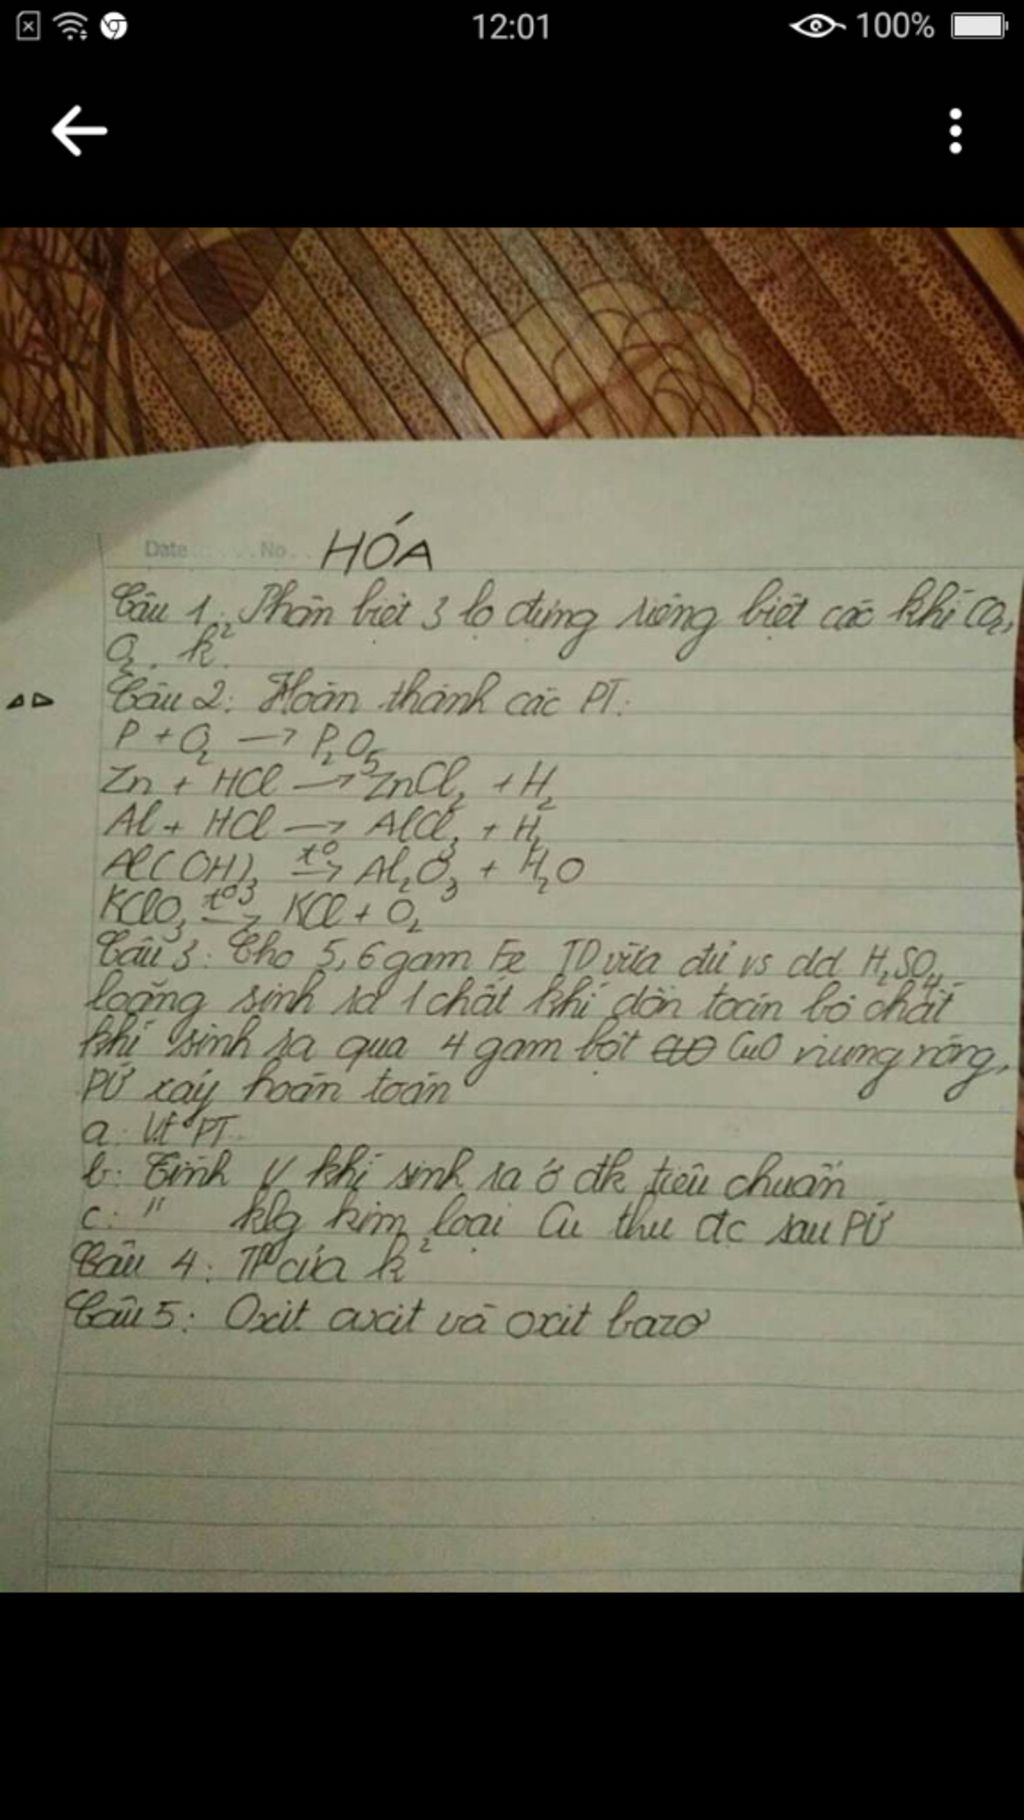 12:01
100%
Date No
HÓA
Câu 1: Phân biệt 3 lọ đựng riêng biệt các khí CO₂,
O₂, k²
Câu 2: Hoàn thành các PT:
P + O₂ → P₂O₅
Zn + HCl → ZnCl₂ + H₂
Al + HCl → AlCl₃ + H₂
Al(OH)₃ t°→ Al₂O₃ + H₂O
KClO₃ t°→ KCl + O₂
Câu 3: Cho 5,6 gam Fe TD vừa đủ vs dd H₂SO₄
loãng sinh ra 1 chất khí dẫn toàn bộ chất
khí sinh ra qua 4 gam bột CuO nung nóng,
PỨ xảy hoàn toàn
a. Vt PT
b. Tính V khí sinh ra ở đk tiêu chuẩn
c. " klg kim loại Cu thu đc sau PỨ
Câu 4: TP của k²
Câu 5: Oxit axit và oxit bazơ